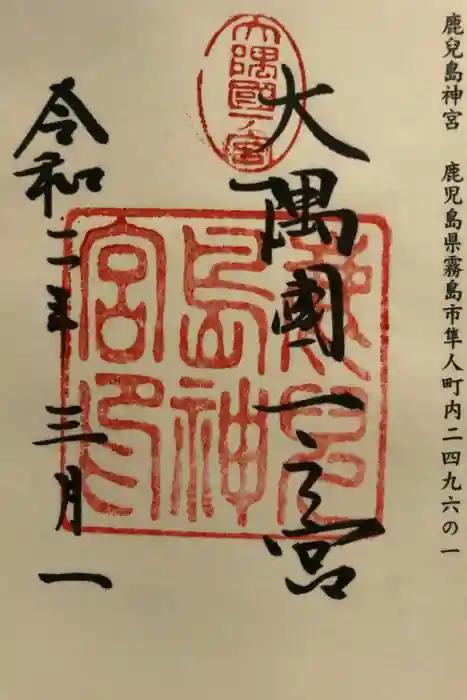 鹿兒島神宮 鹿児島県霧島市隼人町内二四九六の一
大隅國一之宮
大隅國一ノ宮
鹿兒島神宮印
令和二年 三月一